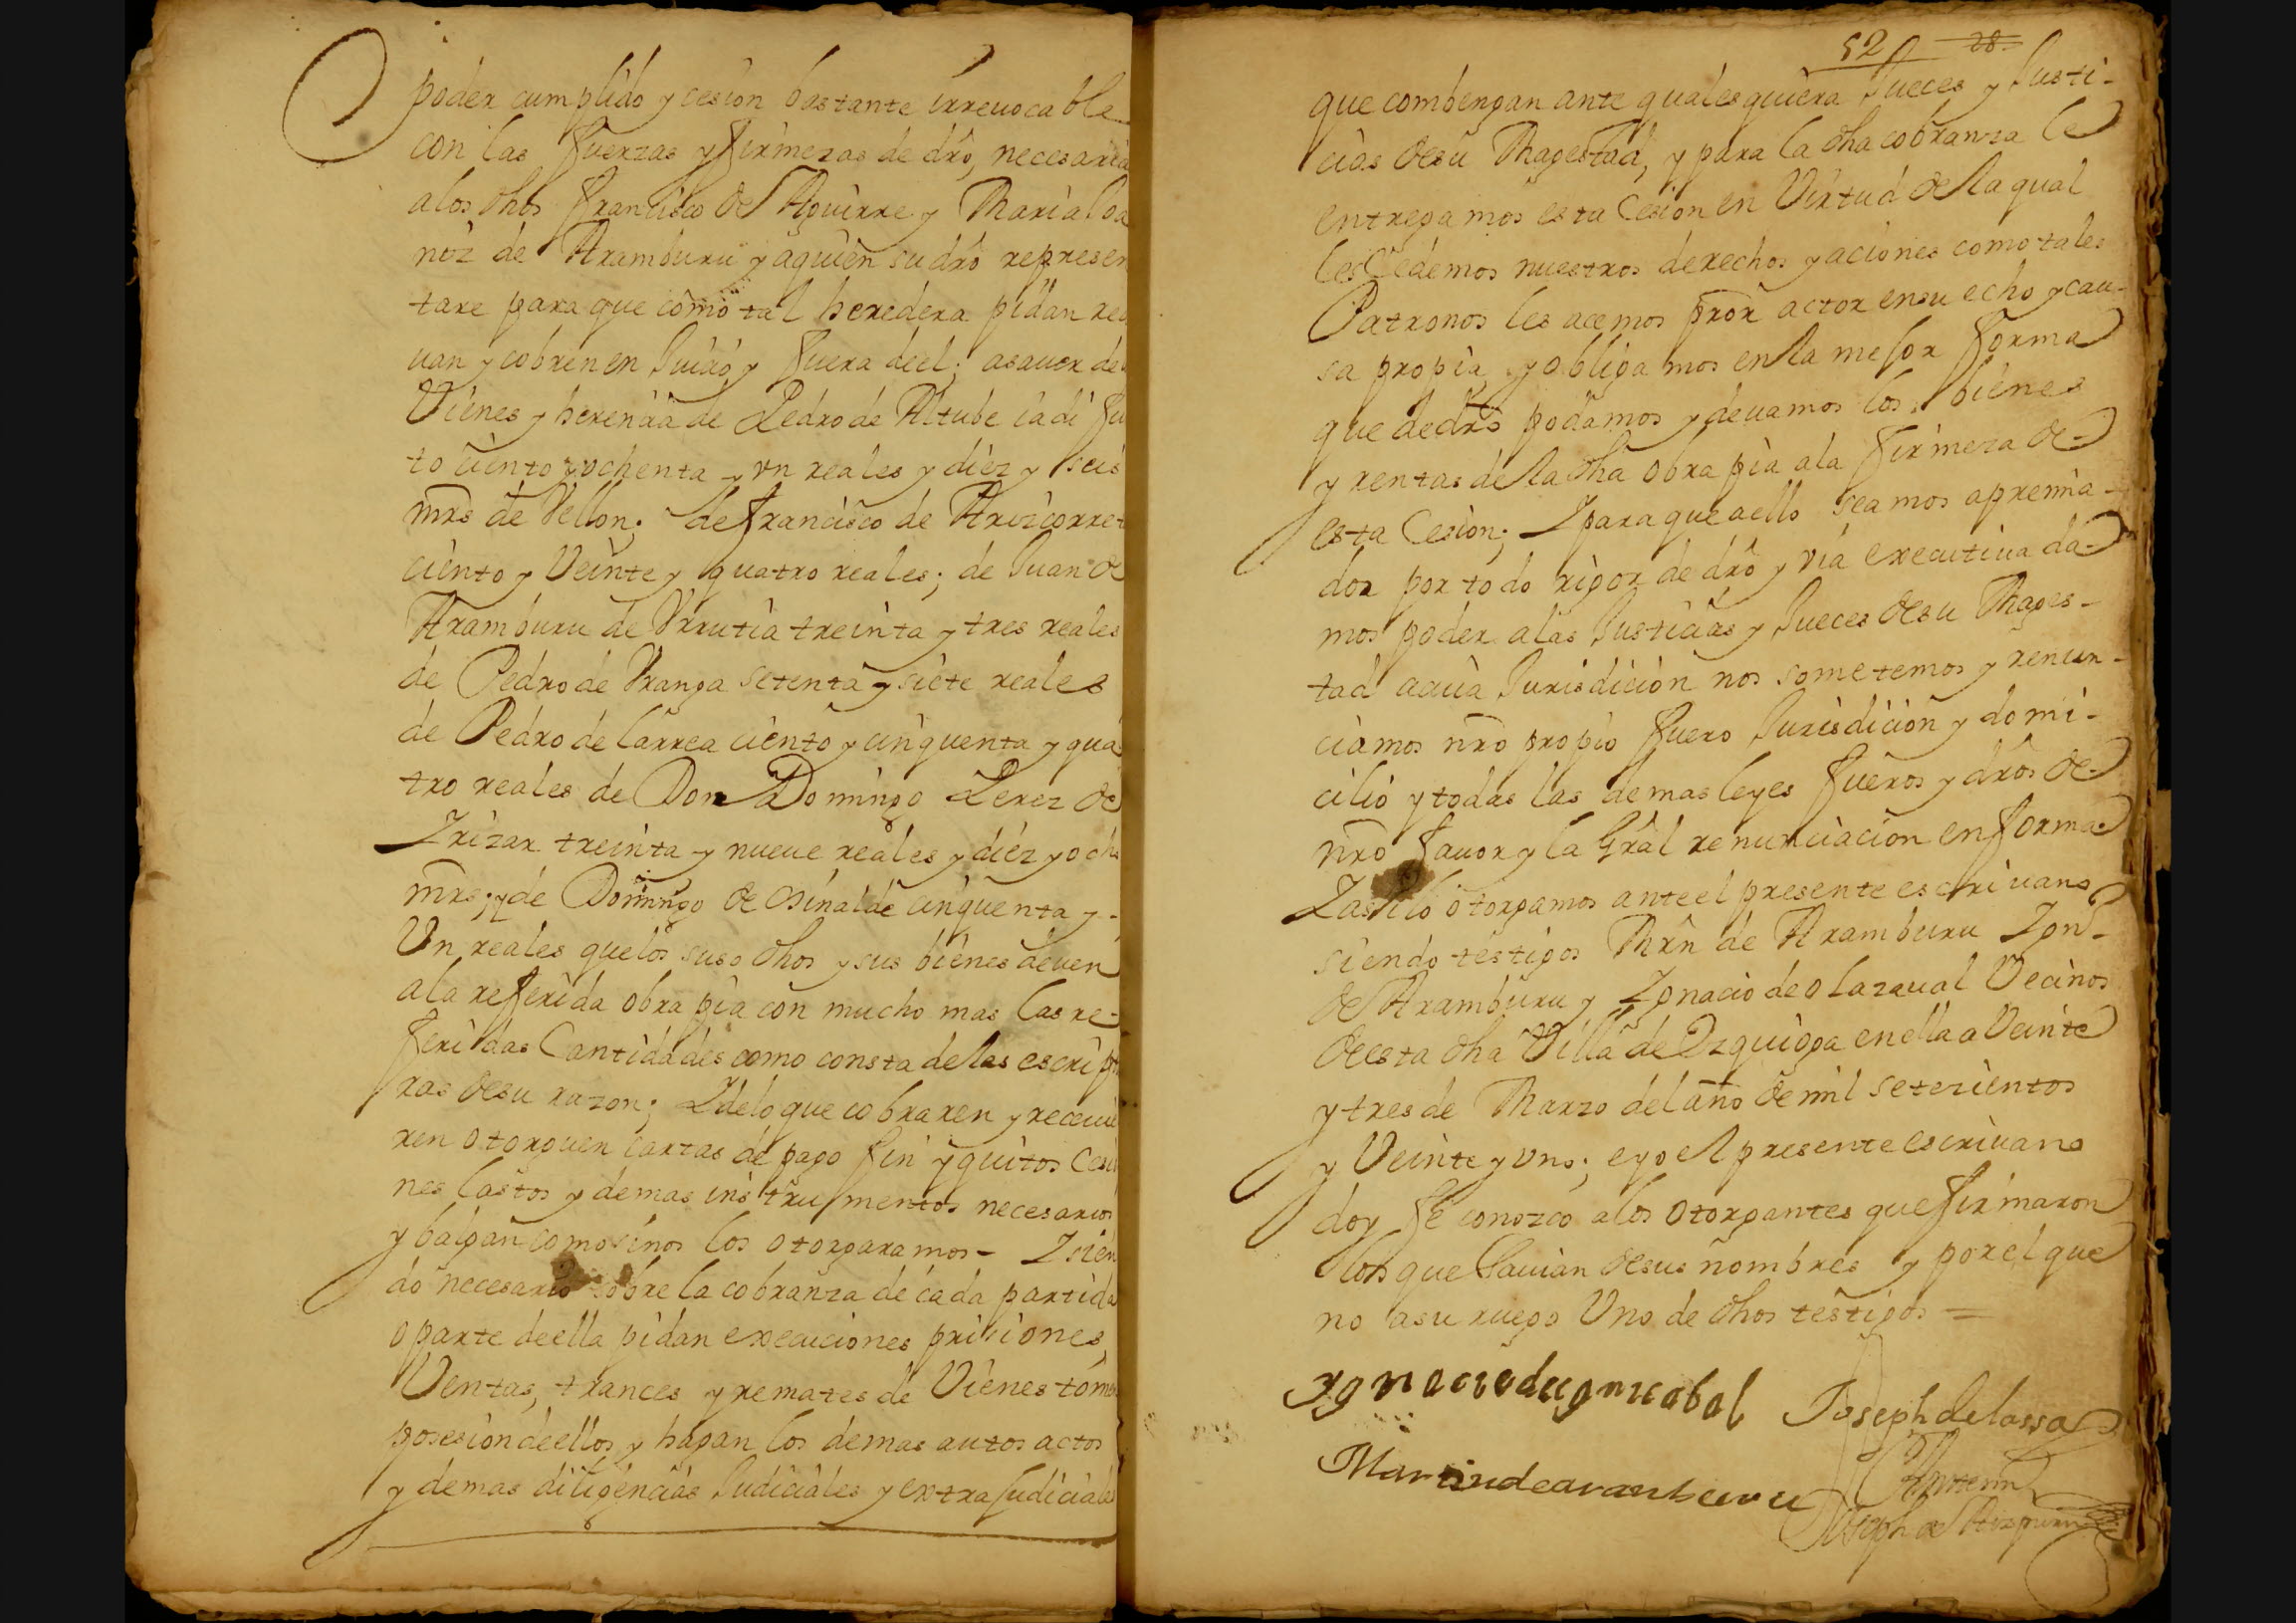 poder cumplido y cesion bastante irreuocable
con las fuerzas y firmezas de dro, necesaria
a los dhos Francisco de Aguirre y Maria
noz de Aramburu y aquien su dro represen
tare para que como tal heredera pidan res
uan y cobren en Juicio y fuera deel; asauer de
Vienes y herencia de Pedro de Altube ia di fu
to ciento y ochenta y vn reales y diez y seis
mrs de Vellon; de Francisco de Arizcorret
ciento y Veinte y quatro reales; de Juan de
Aramburu de Vrrutia treinta y tres reales
de Pedro de Vranga setenta y siete reales
de Pedro de Larrea ciento y cinquenta y qua
tro reales de Don Domingo Perez de
Yrizar treinta y nueue reales y diez y och
mrs; y de Domingo de Osinalde cinquenta y
Vn reales que los suso dhos y sus bienes deuen
ala referida obra pia con mucho mas las re-
feridas Cantidades como consta de las escrip
ras de su razon; Y de lo que cobraren y receui
ren otorguen cartas de pago fin y quitos Cesi
nes lastos y demas instrumentos necesarios
y balgan como si nos los otorgaramos - Y sien
do necesario sobre la cobranza de cada partida
o parte de ella pidan execuciones prisiones,
Ventas, trances y remates de Vienes tom
posesion deellos y hagan los demas autos actos
y demas diligencias Judiciales y extrajudiciales
52 28
que combengan ante quales quiera Jueces y Justi-
cias de su Magestad, y para la dha cobranza le
entregamos esta Cesion en Virtud de la qual
les Cedemos nuestros derechos y aciones como tales
Patronos les acemos pror actor en su echo y cau-
sa propia y obligamos en la mejor forma
que de dro podamos y deuamos los bienes
y rentas de la dha obra pia ala firmeza de
esta Cesion; Y para que aello seamos apremia-
dos por todo rigor de dro y via executiua da-
mos poder alas Justicias y Jueces de su Mages-
tad acuia Jurisdicion nos sometemos y renun-
ciamos nro propio fuero Jurisdicion y domi-
cilio y todas las demas leyes fueros y dros de
nro fauor y la Gral renunciacion en forma
Y asi lo otorgamos ante el presente escriuano
siendo testigos Mrn de Aramburu Ygn
de Aramburu y Ygnacio de Olazaual Vecinos
de esta dha Villa de Ezquioga en ella a Veinte
y tres de Marzo del año de mil setezientos
y Veinte y vno; e yo el presente escriuano
doy fe conozco alos otorgantes que firmaron
los que sauian de sus nombres y por el que
no asu ruego Vno de dhos testigos =
Joseph de lassa
Martin de aramburu
Ante mi
Joseph de Aizpuru